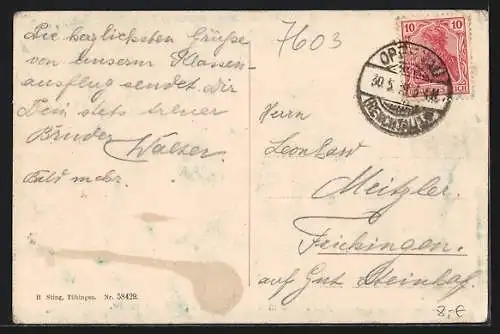 Die herzlichsten Grüße
von unserm Klassen-
ausflug sendet dir
Dein stets treuer
Bruder Walter
Bald mehr.
7603
10 10
OPPENAU
30.5.
(RENCHTAL)
Herrn
Leonhard
Meitzler
Frichingen.
auf Gut Steinhof
H Sting, Tübingen. Nr. 58429.
2,-€